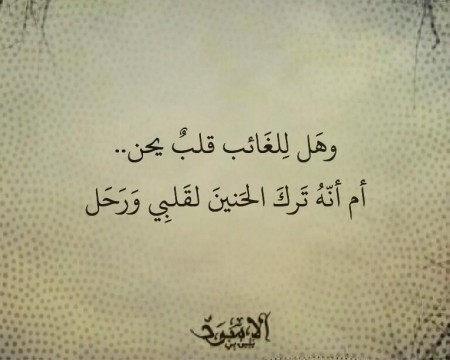 وهَل لِلغَائب قلبٌ يحن..
أم أنّهُ تَركَ الحَنينَ لقَلبِي وَرَحَل